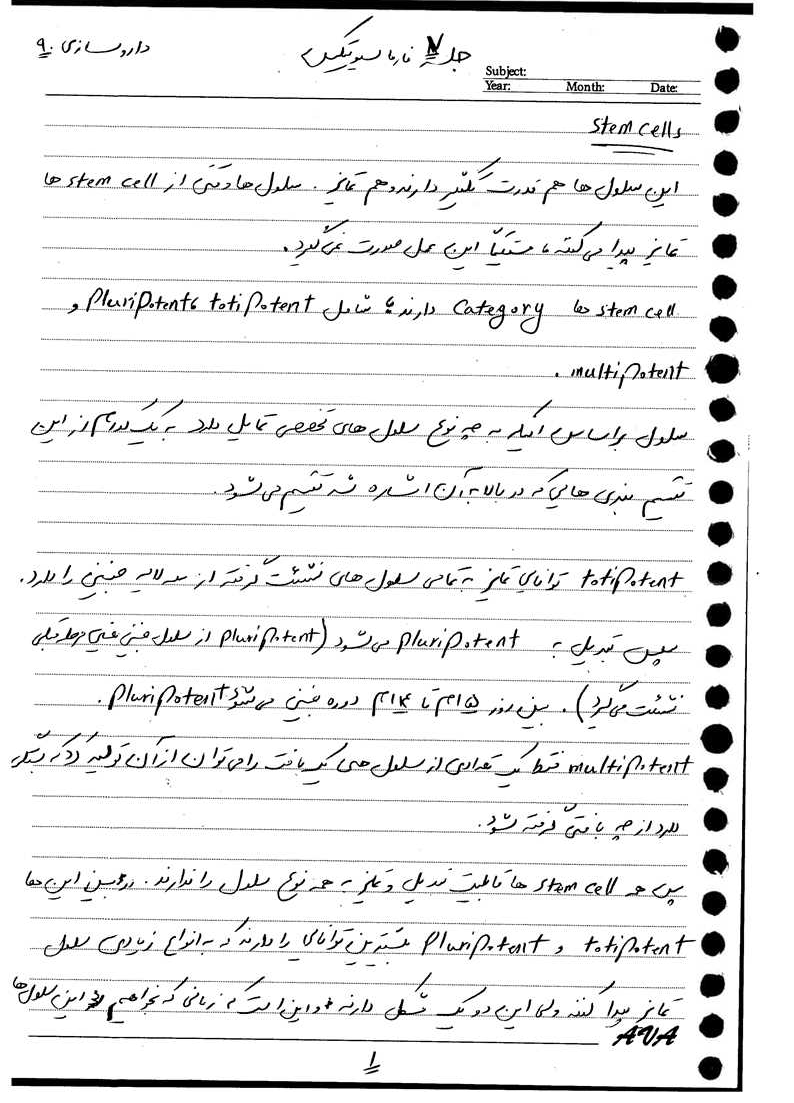 جلسه ۷ فارماسیوتیکس داروسازی ۹۰
Subject:
Year: Month: Date:
stem cells
این سلول ها هم قدرت تکثیر دارند و هم تمایز . سلول ها وقتی از stem cell ها
تمایز پیدا می کنند مستقیماً این عمل صورت نمی گیرد.
stem cell ها category دارند شامل totipotent، pluripotent و
multipotent .
سلول براساس اینکه به چه نوع سلول های تخصصی تمایل دارد به یک کدام از این
تقسیم بندی هایی که در بالا به آن اشاره شد تقسیم می شود.
totipotent توانایی تمایز به تمامی سلول های نشئت گرفته از سه لایه جنینی را دارد.
سپس تبدیل به pluripotent می شود (pluripotent از سلول جنینی مرحله قبلی
نشئت می گیرد). بین روز ۵ام تا ۱۴ام دوره جنینی می شود pluripotent.
multipotent فقط یک تعدادی از سلول حتی یک بافت را می توان از آن تولید کرد که بستگی
دارد از چه بافتی گرفته شود.
پس هر stem cell ها قابلیت تبدیل و تمایز به همه نوع سلول را ندارند. در بین این ها
totipotent و pluripotent بیشترین توانایی را دارند که به انواع زیادی سلول
تمایز پیدا کنند ولی این دو یک مشکل دارند و این است که زمانی که بخواهیم این سلول ها
AVA
۱